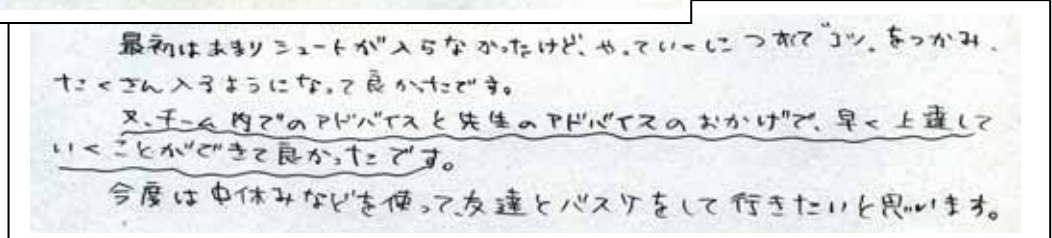 最初はあまりシュートが入らなかったけど、やっていくにつれてコツをつかみ、
たくさん入るようになって良かったです。
又、チーム内でのアドバイスと先生のアドバイスのおかげで、早く上達して
いくことができて良かったです。
今度は中休みなどを使って、友達とバスケをして行きたいと思います。